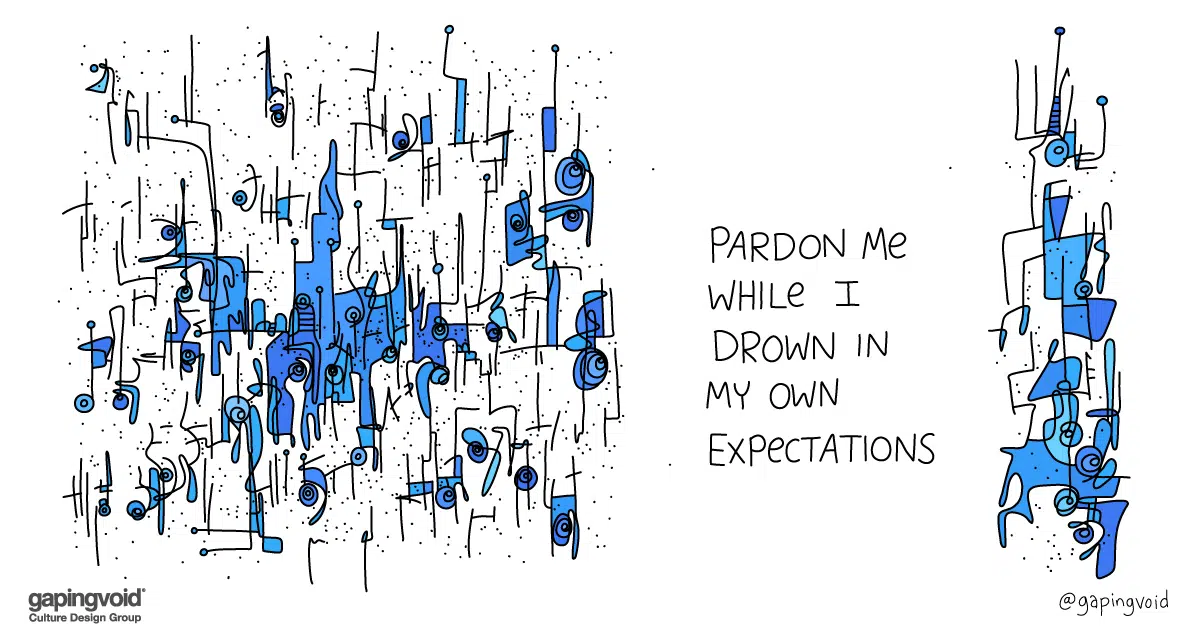 PARDON ME
WHILE I
DROWN IN
MY OWN
EXPECTATIONS
gapingvoid®
Culture Design Group
@gapingvoid